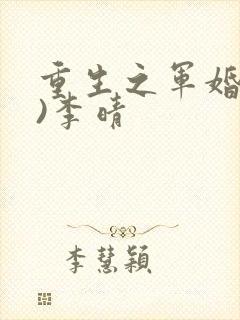 重生之军婚
)李晴
李慧颖